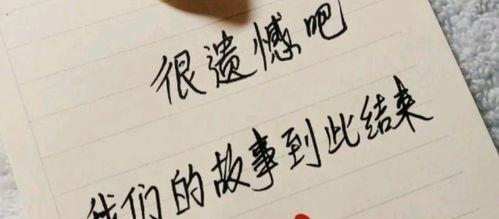 很遗憾吧
我们的故事到此结束